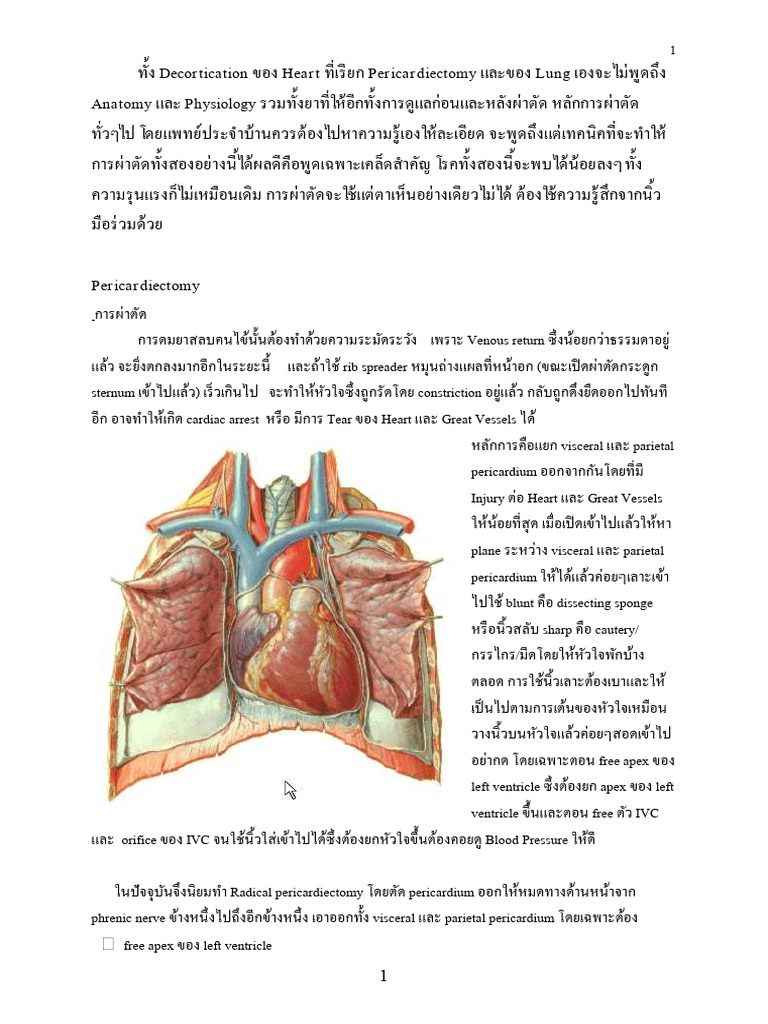 1
ทั้ง Decortication ของ Heart ที่เรียก Pericardiectomy และของ Lung เองจะไม่พูดถึง
Anatomy และ Physiology รวมทั้งยาที่ให้อีกทั้งการดูแลก่อนและหลังผ่าตัด หลักการผ่าตัด
ทั่วๆไป โดยแพทย์ประจำบ้านควรต้องไปหาความรู้เองให้ละเอียด จะพูดถึงแต่เทคนิคที่จะทำให้
การผ่าตัดทั้งสองอย่างนี้ได้ผลดีคือพูดเฉพาะเคล็ดสำคัญ โรคทั้งสองนี้จะพบได้น้อยลงๆ ทั้ง
ความรุนแรงก็ไม่เหมือนเดิม การผ่าตัดจะใช้แต่ตาเห็นอย่างเดียวไม่ได้ ต้องใช้ความรู้สึกจากนิ้ว
มือร่วมด้วย
Pericardiectomy
-การผ่าตัด
การดมยาสลบคนไข้นั้นต้องทำด้วยความระมัดระวัง เพราะ Venous return ซึ่งน้อยกว่าธรรมดาอยู่
แล้ว จะยิ่งตกลงมากอีกในระยะนี้ และถ้าใช้ rib spreader หมุนถ่างแผลที่หน้าอก (ขณะเปิดผ่าตัดกระดูก
sternum เข้าไปแล้ว) เร็วเกินไป จะทำให้หัวใจซึ่งถูกรัดโดย constriction อยู่แล้ว กลับถูกดึงยืดออกไปทันที
อีก อาจทำให้เกิด cardiac arrest หรือ มีการ Tear ของ Heart และ Great Vessels ได้
หลักการคือแยก visceral และ parietal
pericardium ออกจากกันโดยที่มี
Injury ต่อ Heart และ Great Vessels
ให้น้อยที่สุด เมื่อเปิดเข้าไปแล้วให้หา
plane ระหว่าง visceral และ parietal
pericardium ให้ได้แล้วค่อยๆเลาะเข้า
ไปใช้ blunt คือ dissecting sponge
หรือนิ้วสลับ sharp คือ cautery/
กรรไกร/มีดโดยให้หัวใจพักบ้าง
ตลอด การใช้นิ้วเลาะต้องเบาและให้
เป็นไปตามการเต้นของหัวใจเหมือน
วางนิ้วบนหัวใจแล้วค่อยๆสอดเข้าไป
อย่ากด โดยเฉพาะตอน free apex ของ
left ventricle ซึ่งต้องยก apex ของ left
ventricle ขึ้นและตอน free ตัว IVC
และ orifice ของ IVC จนใช้นิ้วใส่เข้าไปได้ซึ่งต้องยกหัวใจขึ้นต้องคอยดู Blood Pressure ให้ดี
ในปัจจุบันจึงนิยมทำ Radical pericardiectomy โดยตัด pericardium ออกให้หมดทางด้านหน้าจาก
phrenic nerve ข้างหนึ่งไปถึงอีกข้างหนึ่ง เอาออกทั้ง visceral และ parietal pericardium โดยเฉพาะต้อง
free apex ของ left ventricle
1